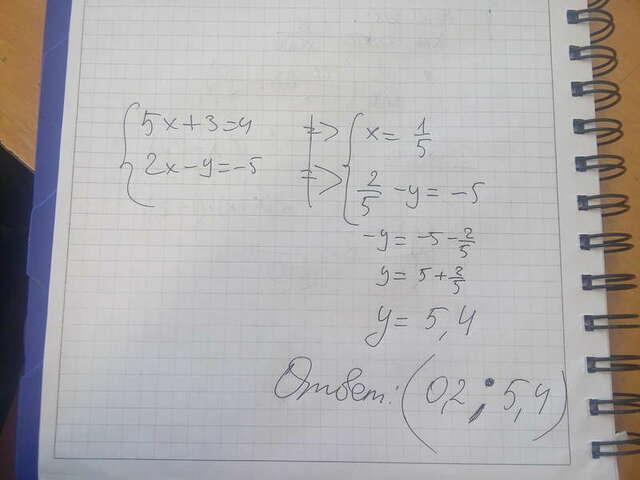 { 5x + 3 = 4 => { x = 1/5
{ 2x - y = -5 => { 2/5 - y = -5
-y = -5 - 2/5
y = 5 + 2/5
y = 5,4
Ответ: (0,2 ; 5,4)